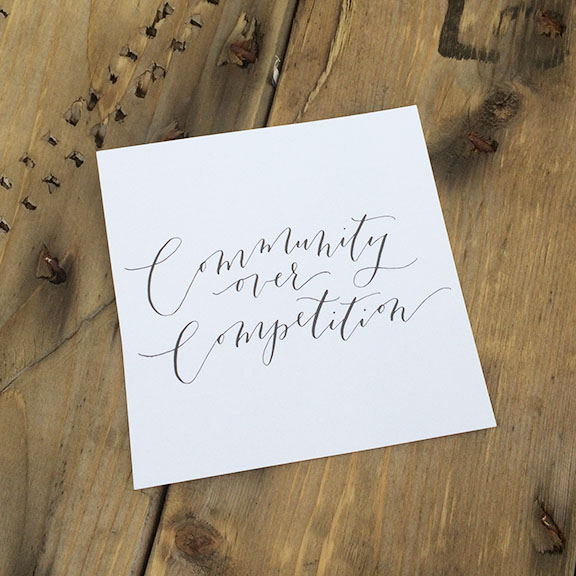 Community
over
Competition